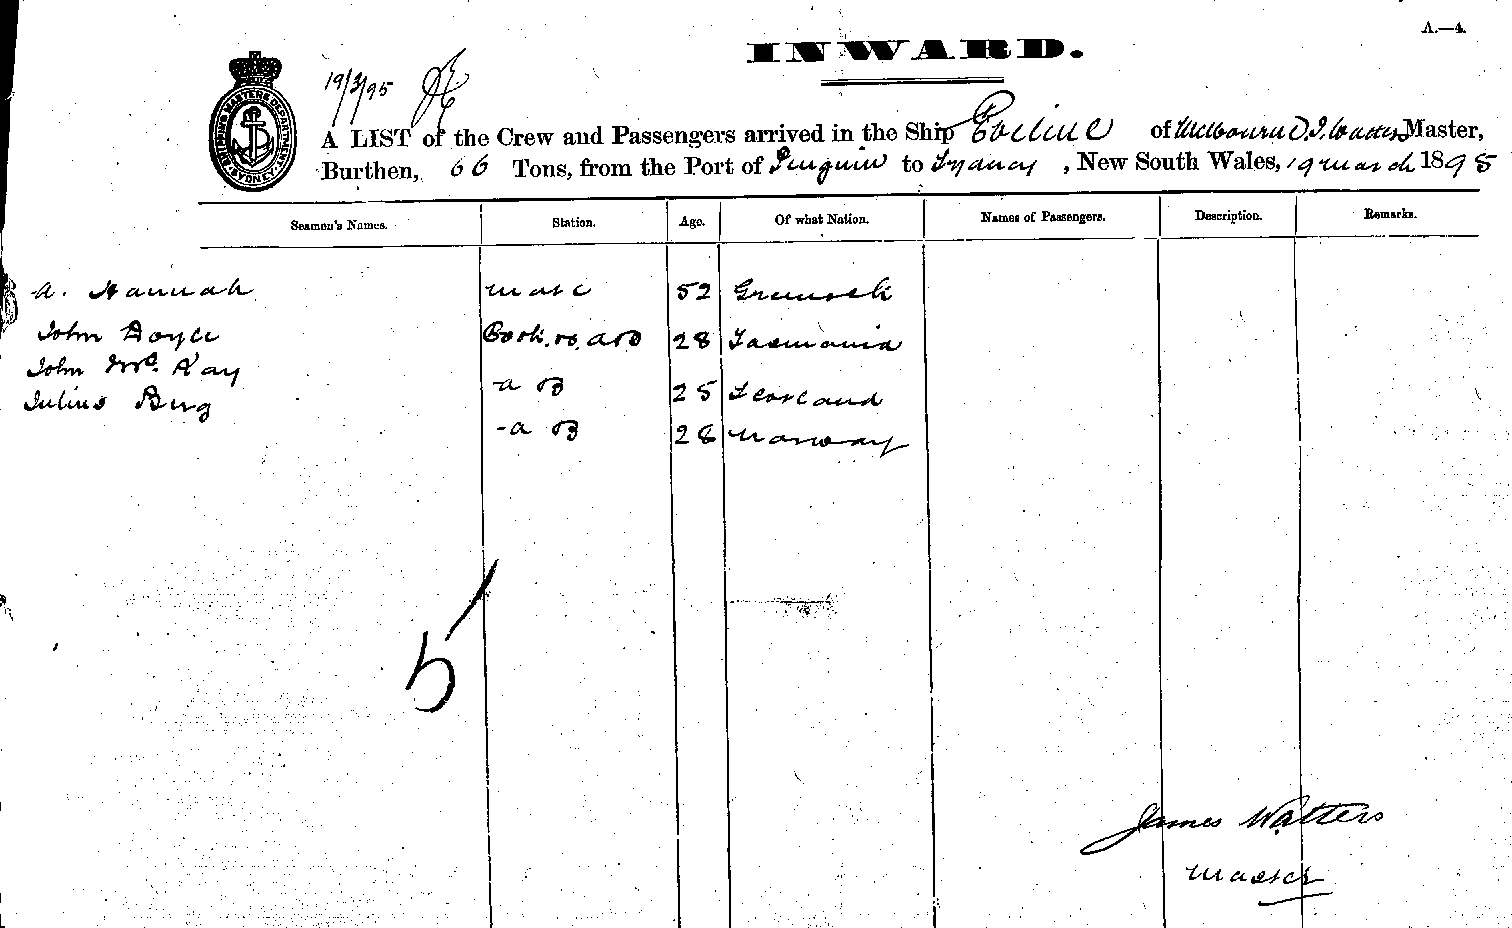 A.—4.
INWARD.
19/3/95
SHIPPING MASTERS DEPARTMENT SYDNEY
A LIST of the Crew and Passengers arrived in the Ship of Melbourne Master,
Burthen, 66 Tons, from the Port of Penguin to Sydney, New South Wales, 19 March 1895
Seamen's Names. Station. Age. Of what Nation. Names of Passengers. Description. Remarks.
A. Hannah mate 52 Greenock
John Doyle Cook 28 Tasmania
John McKay A B 25 Scotland
Julius Berg A B 28 Norway
5
James Watters
Master